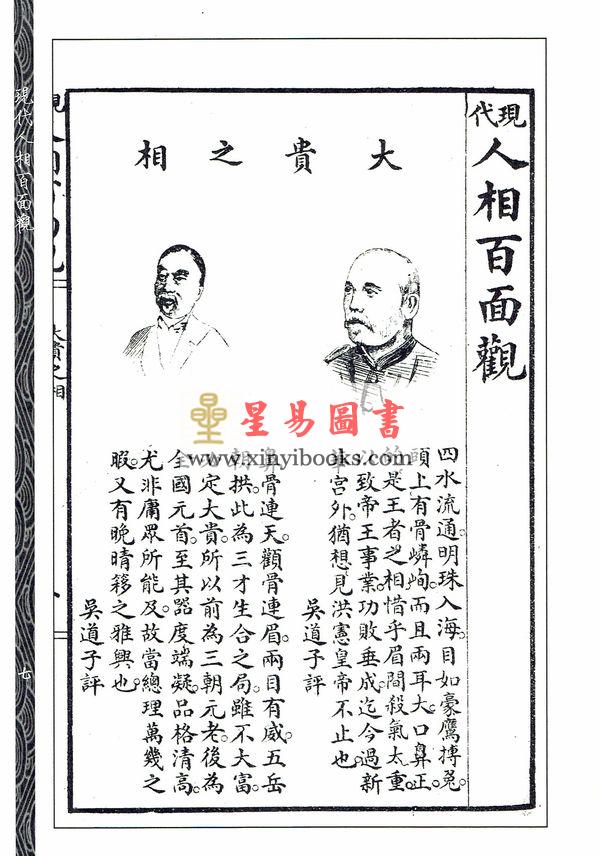 現代人相百面觀
大貴之相
四水流通。明珠入海。目如豪鷹搏兎。
頭上有骨嶙峋。而且兩耳大。口鼻正。
是王者之相。惜乎眉間殺氣太重。
致帝王事業。功敗垂成。迄今過新
華宮外。猶想見洪憲皇帝不止也。
吳道子評
鼻骨連天。顴骨連眉。兩目有威。五岳
相拱。此為三才生合之局。雖不大富
定大貴。所以前為三朝元老。後為
全國元首。至其器度端凝。品格清高。
尤非庸眾所能及。故當總理萬幾之
暇。又有晚晴簃之雅興也。
吳道子評
大貴之相
現代人相百面觀
七
星易圖書
www.xinyibooks.com